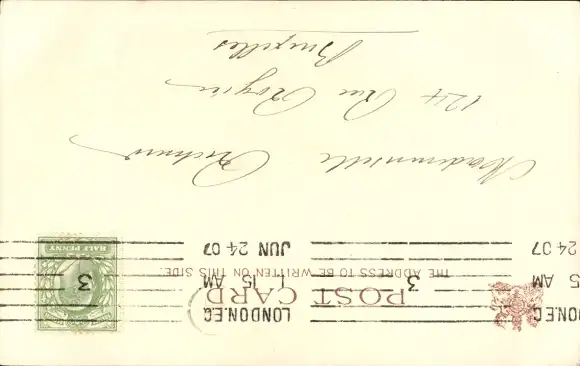 LONDON.E.C
1 15 AM
JUN 24 07
3
LONDON.E.C
5 AM
24 07
3
POST CARD
THE ADDRESS TO BE WRITTEN ON THIS SIDE.
HALF PENNY
Mademoiselle
124 Rue Rogier
Bruxelles